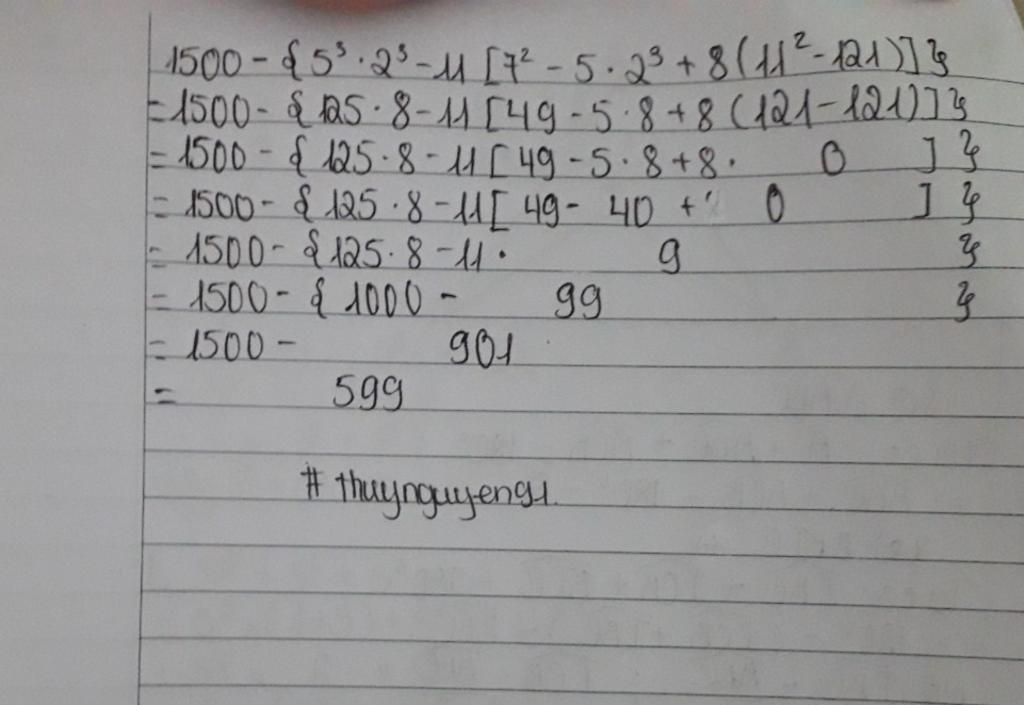 1500 - { 5³ · 2³ - 11 [ 7² - 5 · 2³ + 8 ( 11² - 121 ) ] }
= 1500 - { 125 · 8 - 11 [ 49 - 5 · 8 + 8 ( 121 - 121 ) ] }
= 1500 - { 125 · 8 - 11 [ 49 - 5 · 8 + 8 · 0 ] }
= 1500 - { 125 · 8 - 11 [ 49 - 40 + 0 ] }
= 1500 - { 125 · 8 - 11 · 9 }
= 1500 - { 1000 - 99 }
= 1500 - 901
= 599
# thuynguyen91.